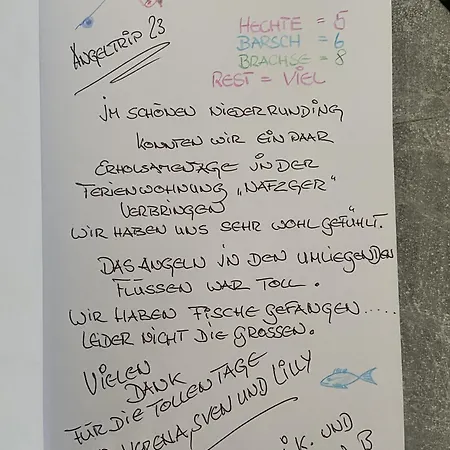 ANGELTRIP 23
HECHTE = 5
BARSCH = 6
BRACHSE = 8
REST = VIEL
IM SCHÖNEN NIEDERRUNDING
KONNTEN WIR EIN PAAR
ERHOLSAME TAGE IN DER
FERIENWOHNUNG „NAFZGER"
VERBRINGEN
WIR HABEN UNS SEHR WOHL GEFÜHLT.
DAS ANGELN IN DEN UMLIEGENDEN
FLÜSSEN WAR TOLL.
WIR HABEN FISCHE GEFANGEN.....
LEIDER NICHT DIE GROSSEN.
VIELEN
DANK
FÜR DIE TOLLEN TAGE
VERENA, SVEN UND LILLY
K. UND
B